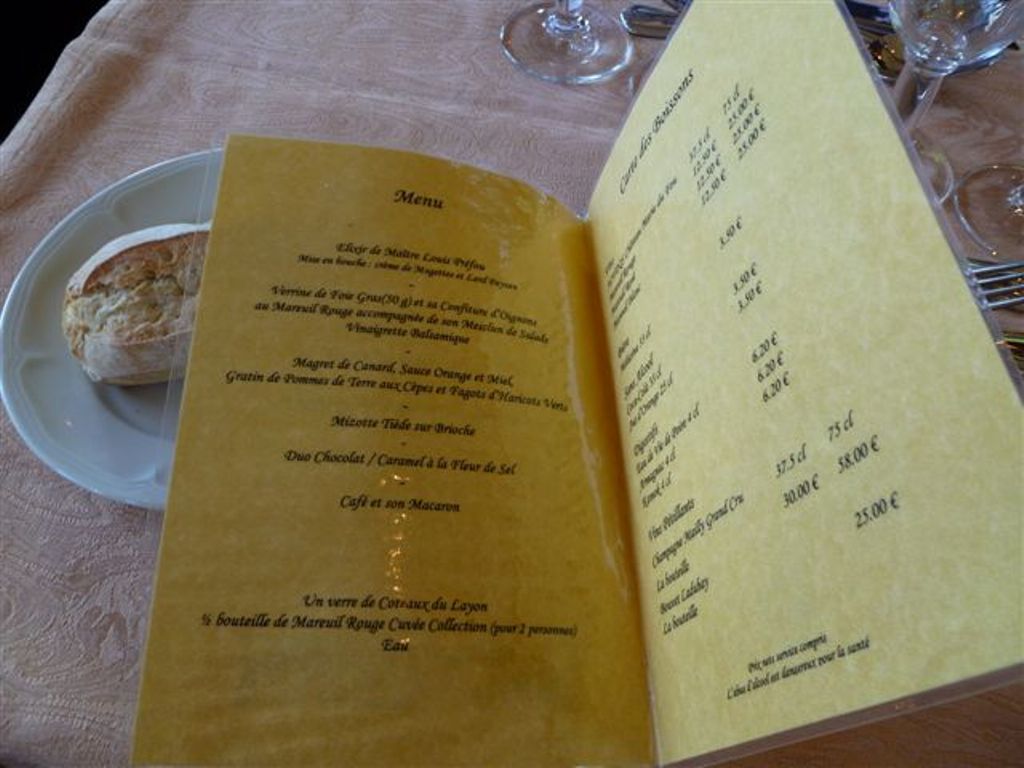 Menu
Elixir de Maître Louis Préfou
Mise en bouche : crème de Mogettes et Lard Paysan
-
Verrine de Foie Gras(50 g) et sa Confiture d'Oignons
au Mareuil Rouge accompagnée de son Mesclun de Salade
Vinaigrette Balsamique
-
Magret de Canard, Sauce Orange et Miel,
Gratin de Pommes de Terre aux Cèpes et Fagots d'Haricots Verts
-
Mizotte Tiède sur Brioche
-
Duo Chocolat / Caramel à la Fleur de Sel
-
Café et son Macaron
Un verre de Coteaux du Layon
½ bouteille de Mareuil Rouge Cuvée Collection (pour 2 personnes)
Eau
Carte des Boissons
37.5 cl 75 cl
12.50 € 25.00 €
12.50 € 25.00 €
12.50 € 25.00 €
3.50 €
33 cl
Sans Alcool
Coca-Cola 33 cl 3.50 €
Jus d'Orange 25 cl 3.50 €
Digestifs
Eau de Vie de Poire 4 cl 6.20 €
4 cl 6.20 €
4 cl 6.20 €
37.5 cl 75 cl
Vins Pétillants
Champagne Mailly Grand Cru 30.00 € 58.00 €
La bouteille
Bouvet Ladubay 25.00 €
La bouteille
Prix nets service compris
L'abus d'alcool est dangereux pour la santé